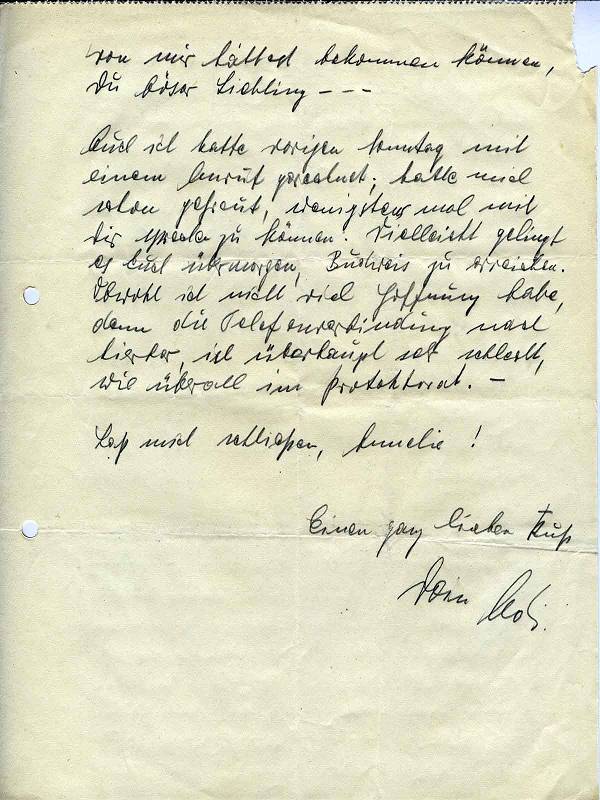 von mir hättest bekommen können,
Du böser Liebling - - -
Auch ich hatte vorigen Sonntag mit
einem Anruf gerechnet; hatte mich
schon gefreut, wenigstens mal mit
Dir sprechen zu können. Vielleicht gelingt
es Euch übermorgen, zu erreichen.
Obwohl ich nicht viel Hoffnung habe,
denn die Telefonverbindung nach
hierher, ist überhaupt sehr schlecht,
wie überall im Protektorat. -
Laß mich schließen, Annelie!
Einen ganz lieben Kuß
Dein